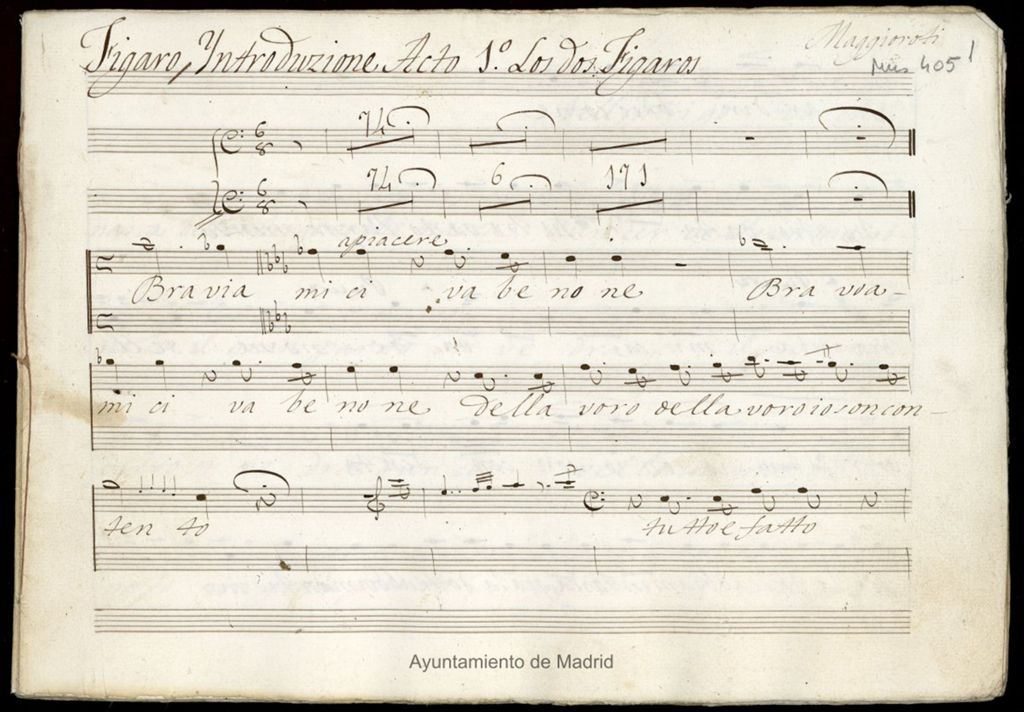 Figaro, Yntroduzione. Acto 1º. Los dos Figaros
Maggioroti
Mus 405
1
74
74 6 171
apiacere
Bra via mi ci va be no ne Bra voa-
mi ci va be no ne della voro della voro io son con-
ten to tutto e fatto
Ayuntamiento de Madrid